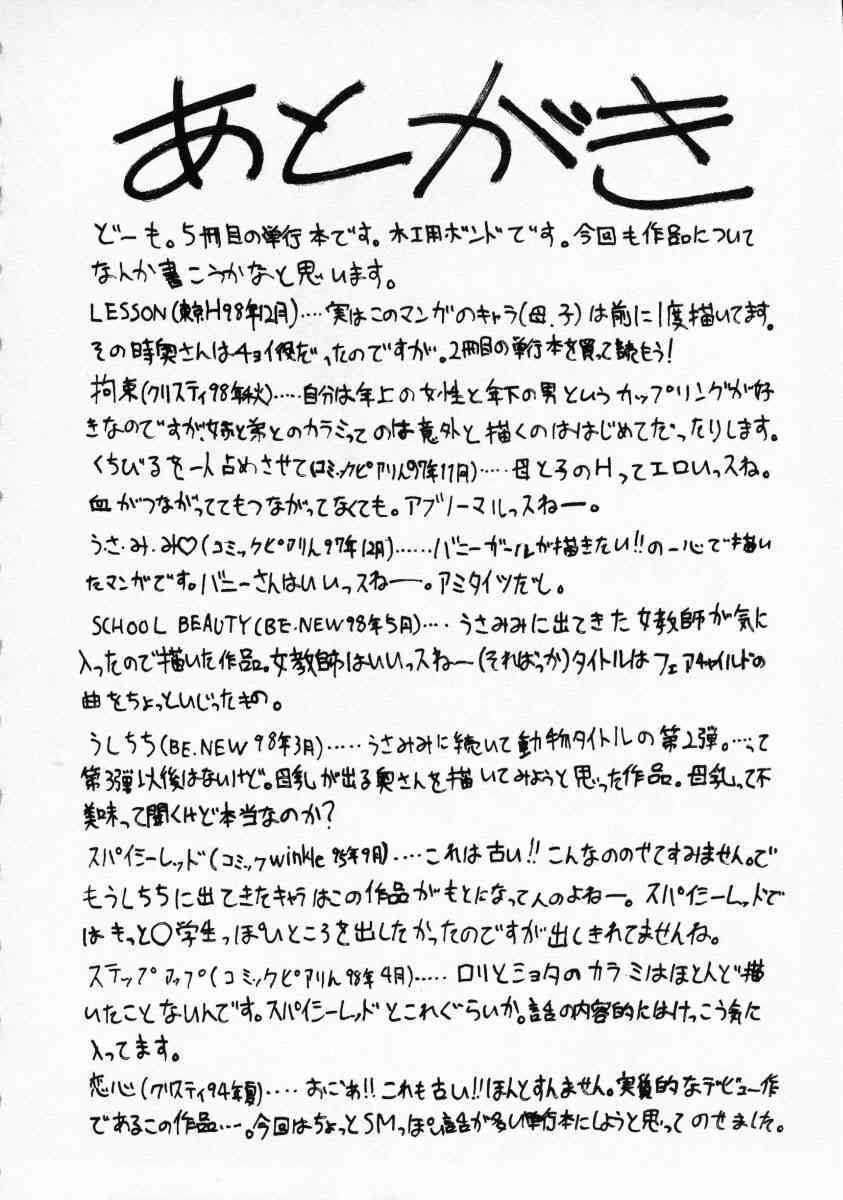 あとがき
どーも。5冊目の単行本です。木工用ボンドです。今回も作品について
なんか書こうかなと思います。
LESSON(東京H98年12月)‥‥実はこのマンガのキャラ(母、子)は前に1度描いてます。
その時奥さんはチョイ役だったのですが。2冊目の単行本を買って読もう!
拘束(クリスティ98年秋)‥‥‥自分は年上の女性と年下の男というカップリングが好
きなのですが、姉と弟とのカラミってのは意外と描くのははじめてだったりします。
くちびるを一人占めさせて(コミックピアリん97年11月)‥‥‥母と子のHってエロいっスね。
血がつながっててもつながってなくても。アブノーマルっスねー。
うさ・み・み♡(コミックピアリん97年12月)‥‥‥バニーガールが描きたい!!の一心で描い
たマンガです。バニーさんはいいっスねー。アミタイツだし。
SCHOOL BEAUTY(BE.NEW98年5月)‥‥うさみみに出てきた女教師が気に
入ったので描いた作品。女教師はいいっスねー(そればっか)タイトルはフェアチャイルドの
曲をちょっといじったもの。
うしちち(BE.NEW 98年3月)‥‥‥うさみみに続いて動物タイトルの第2弾。‥‥って
第3弾以後はないけど。母乳が出る奥さんを描いてみようと思った作品。母乳って不
美味って聞くけど本当なのか?
スパイシーレッド(コミックwinkle 95年9月)‥‥これは古い!!こんなののせてすみません。で
もうしちちに出てきたキャラはこの作品がもとになってんのよねー。スパイシーレッドで
はきっと○学生っぽいところを出したかったのですが出しきれてませんね。
ステップアップ(コミックピアリん98年4月)‥‥‥ロリとショタのカラミはほとんど描
いたことないんです。スパイシーレッドとこれぐらいか。話の内容的にはけっこう気に
入ってます。
恋心(クリスティ94年夏)‥‥おにょ!!これも古い!!ほんとすんません。実質的なデビュー作
であるこの作品‥‥。今回はちょっとSMっぽい話が多い単行本にしようと思ってのせました。